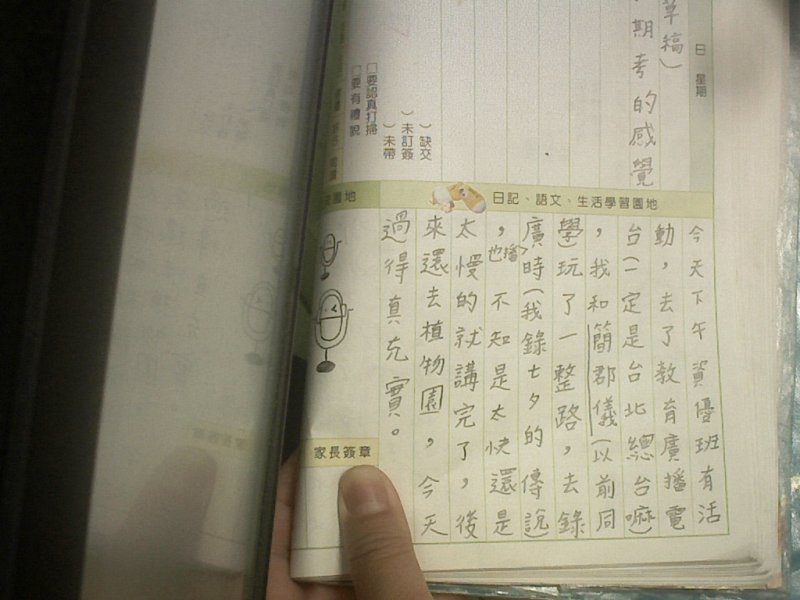 日 星期
草稿）
期考的感覺
）缺交
）未訂簽
）未帶
□要認真打掃
□要有禮貌
日記、語文、生活學習園地
今天下午資優班有活
動，去了教育廣播電
台（一定是台北總台嘛）
，我和簡郡儀（以前同
學）玩了一整路，去錄
廣播時（我錄七夕的傳說）
，也不知是太快還是
太慢的就講完了，後
來還去植物園，今天
過得真充實。
園地
家長簽章